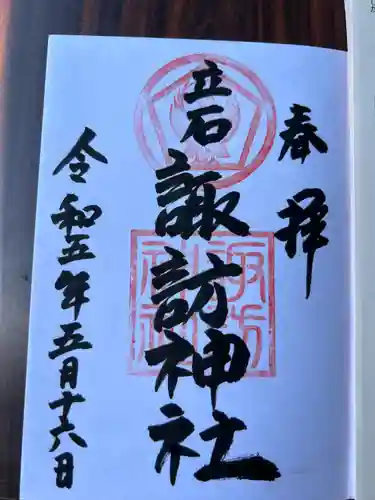 奉拝
立石
諏訪神社
令和五年五月十六日